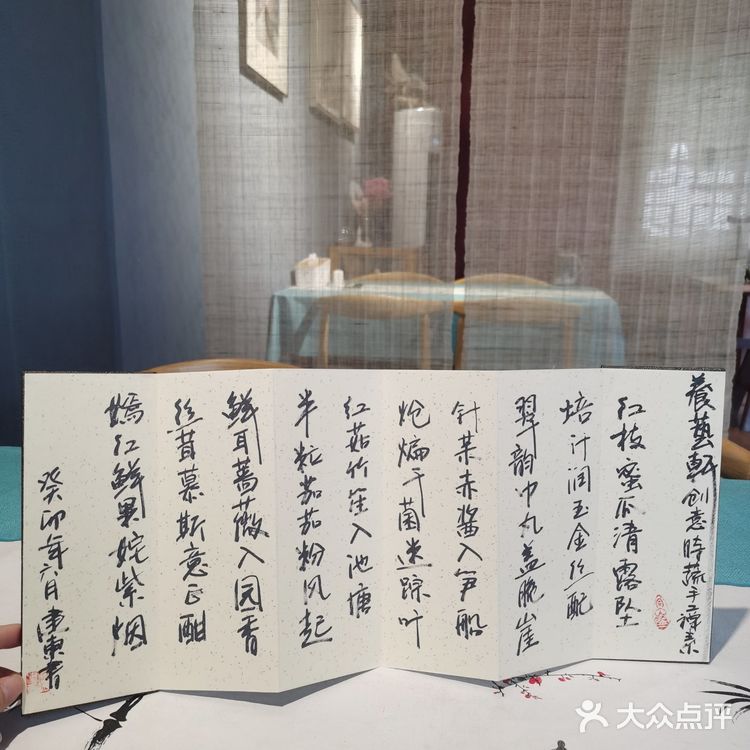 養藝軒创意時蔬手譯素
红枝蜜瓜清露坠
焙汁润玉金丝配
翠韵冲丸盖脆崖
针菜赤酱入笋船
炝煸干菌迷踪叶
红菇竹笙入池塘
半粒茄茄粉风起
鲜耳蔷薇入园香
丝苗慕斯意正酣
嫣红鲜果姹紫烟
癸卯年六月
大众点评